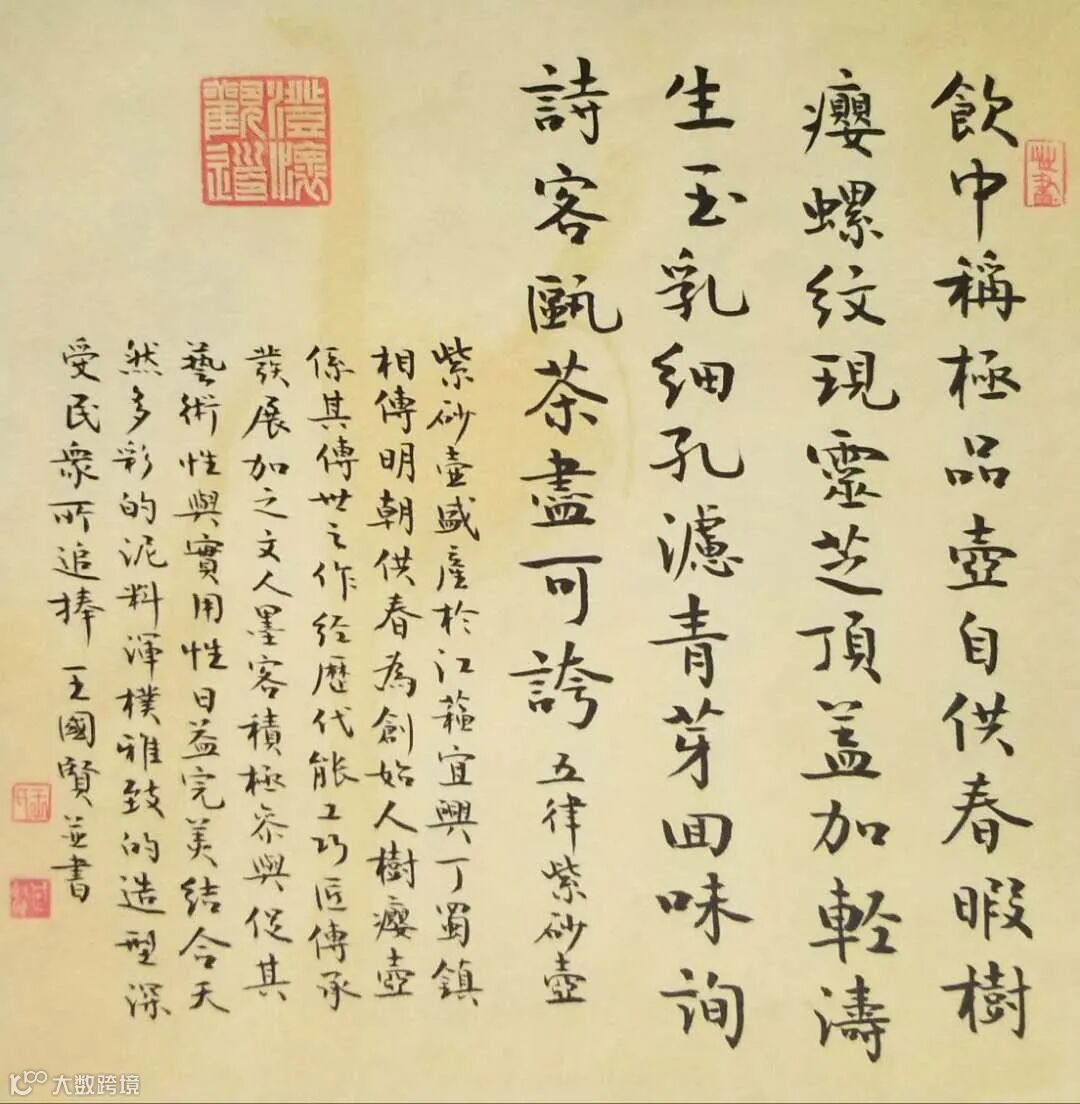 飲中稱極品壺自供春暇樹
癭螺紋現靈芝頂蓋加輕濤
生玉乳細孔濾青芽回味詢
詩客甌茶盡可誇 五律紫砂壺
紫砂壺盛産於江蘇宜興丁蜀鎮
相傳明朝供春為創始人樹癭壺
係其傳世之作经歷代能工巧匠傳承
發展加之文人墨客積極參與促其
藝術性與實用性日益完美結合天
然多彩的泥料渾樸雅致的造型深
受民衆所追捧 王國賢並書
澄懷觀道
大数跨境